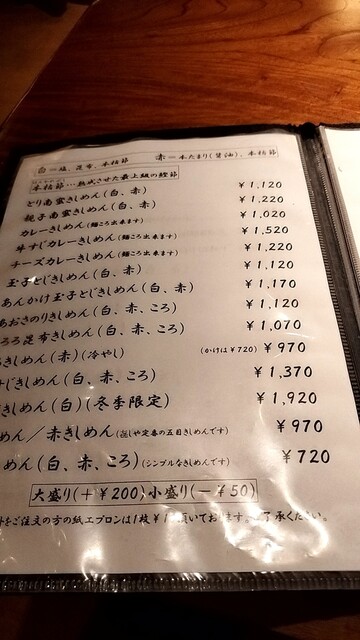 白＝塩、昆布、本枯節　赤＝本たまり(醤油)、本枯節
本枯節…熟成させた最上級の鰹節
とり南蛮きしめん(白、赤) ¥1,120
親子南蛮きしめん(白、赤) ¥1,220
カレーきしめん(麺ころ出来ます) ¥1,020
牛すじカレーきしめん(麺ころ出来ます) ¥1,520
チーズカレーきしめん(麺ころ出来ます) ¥1,220
玉子とじきしめん(白、赤) ¥1,120
あんかけ玉子とじきしめん(白、赤) ¥1,170
あおさのりきしめん(白、赤、ころ) ¥1,120
ろろ昆布きしめん(白、赤、ころ) ¥1,070
きしめん(赤)(冷やし) (かけは¥720) ¥970
じきしめん(白、赤、ころ) ¥1,370
きしめん(白)(冬季限定) ¥1,920
めん／赤きしめん(定番の五目きしめんです) ¥970
めん(白、赤、ころ)(シンプルなきしめんです) ¥720
大盛り(＋¥200)小盛り(－¥50)
をご注文の方の紙エプロンは1枚¥ 頂いております。ご了承ください。